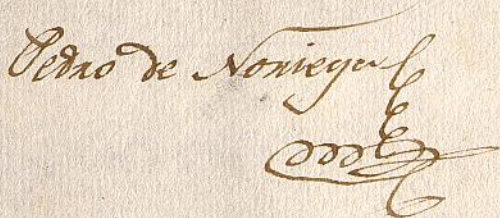 Pedro de Noriega